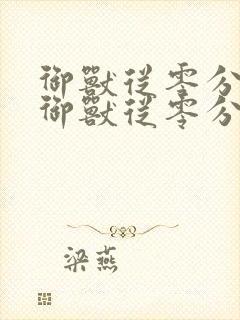 御獸從零分
御獸從零分
梁燕